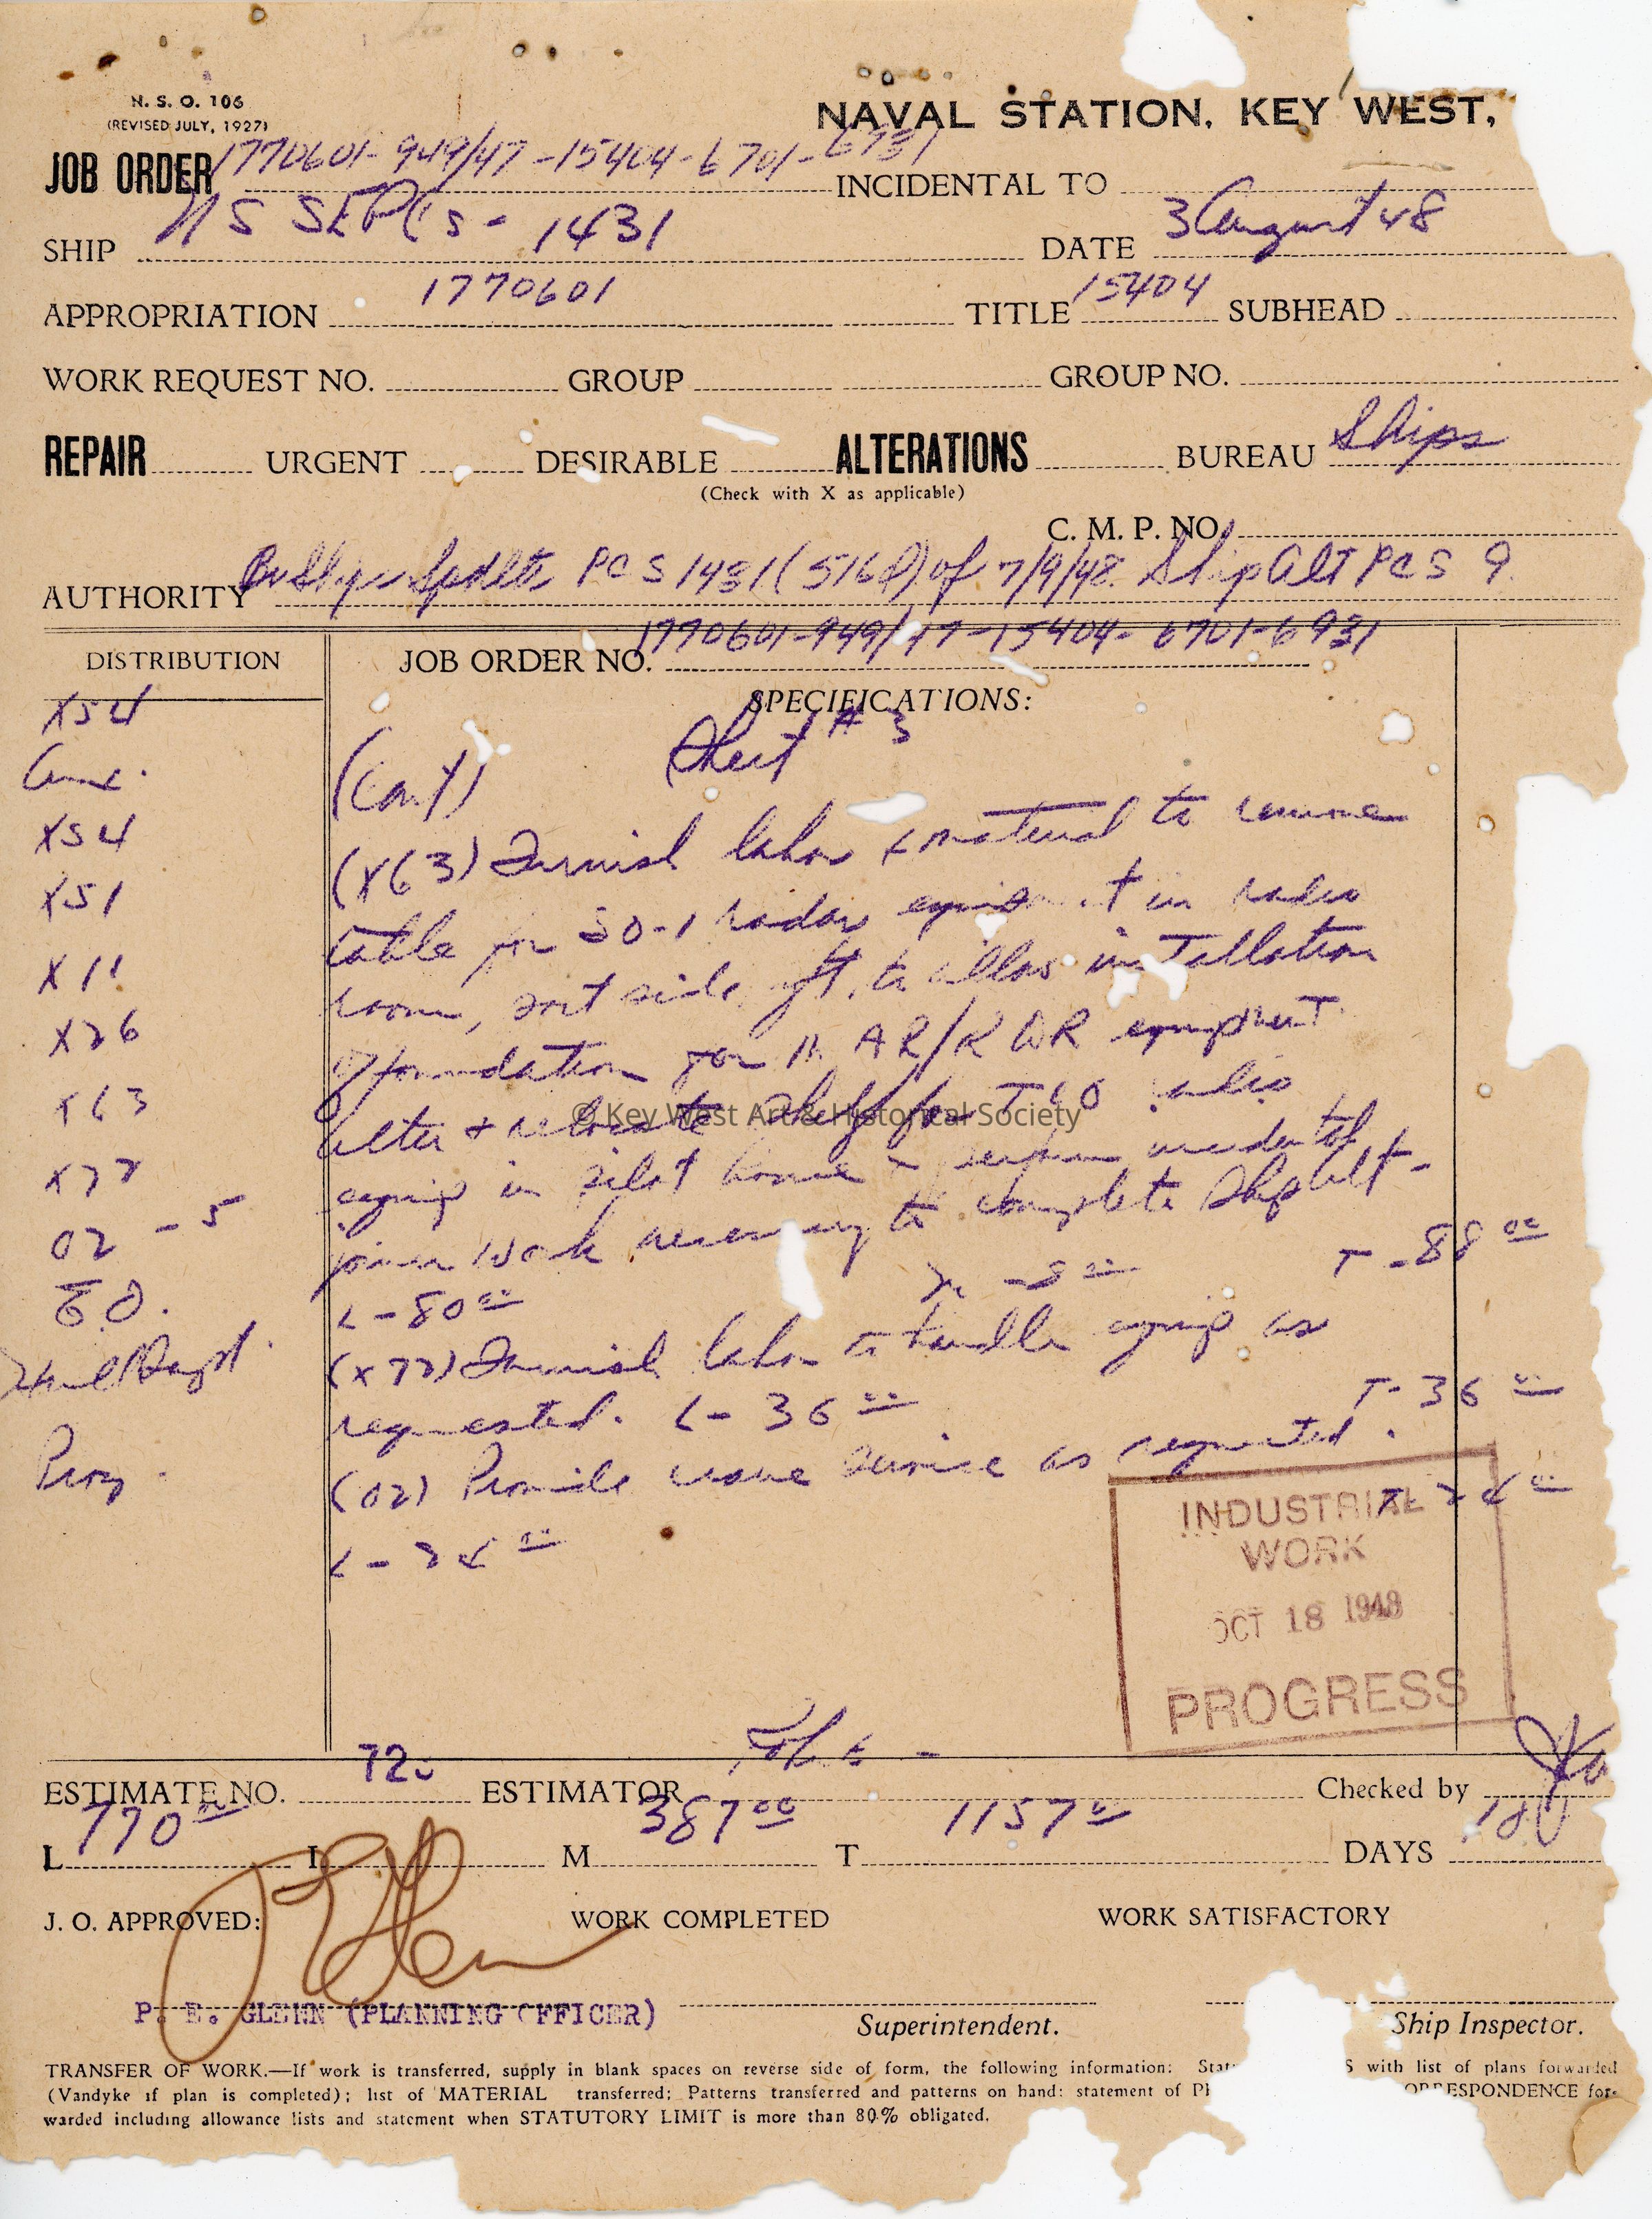 N. S. O. 106
(REVISED JULY, 1927)
NAVAL STATION, KEY WEST,
JOB ORDER 1770601-949/47-15404-6701-6731 INCIDENTAL TO
SHIP PCS-1431 DATE 3 August 48
APPROPRIATION 1770601 TITLE 15404 SUBHEAD
WORK REQUEST NO. GROUP GROUP NO.
REPAIR URGENT DESIRABLE ALTERATIONS BUREAU Ships
(Check with X as applicable)
C. M. P. NO.
AUTHORITY BuShips Spdltr PCS 1431 of 7/9/48. ShipAlt PCS 9.
DISTRIBUTION
JOB ORDER NO. 1770601-949/47-15404-6701-6931
SPECIFICATIONS:
X54
X54
X51
X11
X26
X63
X72
02 - 5
E.O.
Sheet #3
(Cont)
(X63) Furnish labor & material to remove
table for SO-1 radar equipment in radio
room, port side, aft, to allow installation
of foundation for AR/RDR equipment.
Alter & relocate shelf for radio
equip in pilot house & perform incidental
joiner work necessary to complete ShipAlt-
L-80.00 M-8.00 T-88.00
(X72) Furnish labor to handle equip as
requested. L-36.00 T-36.00
(02) Provide crane service as requested.
L-24.00 T-24.00
© Key West Art & Historical Society
INDUSTRIAL
WORK
OCT 18 1948
PROGRESS
ESTIMATE NO. ESTIMATOR Checked by
L 770.00 I M 387.00 T 1157.00 DAYS 180
J. O. APPROVED: WORK COMPLETED WORK SATISFACTORY
P. E. GLENN (PLANNING OFFICER)
Superintendent. Ship Inspector.
TRANSFER OF WORK.—If work is transferred, supply in blank spaces on reverse side of form, the following information: S with list of plans forwarded
(Vandyke if plan is completed); list of MATERIAL transferred; Patterns transferred and patterns on hand: statement of CORRESPONDENCE for-
warded including allowance lists and statement when STATUTORY LIMIT is more than 80% obligated.